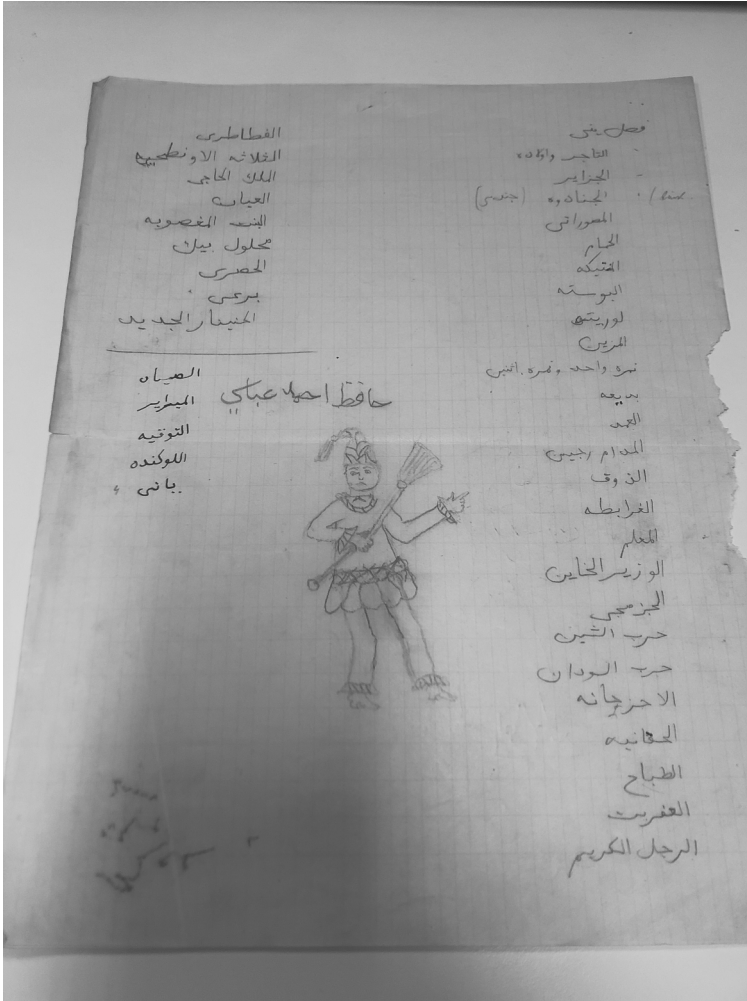 فصل يني
التاجر واولاده
الجزاير
الجنادوه (جندي)
المصوراتي
الحمام
الفتيكه
البوسته
لوريته
المرين
نمره واحد ونمره اتنين
بديعه
العهد
المدام رجين
الذوق
الغرابطه
المعلم
الوزير الخاين
الجزمجي
حرب الشين
حرب السودان
الاجزجانه
الحقانيه
الطباخ
العفريت
الرجل الكريم
القطاطرى
الثلاثه الاونطجيه
الملك الحاجى
العيان
البنت المغصوبه
محلول بيك
الحصرى
برعى
المنيفار الجديد
حافظ احمد عباس
الصياد
الميطرير
التوتيه
اللوكنده
ببانى